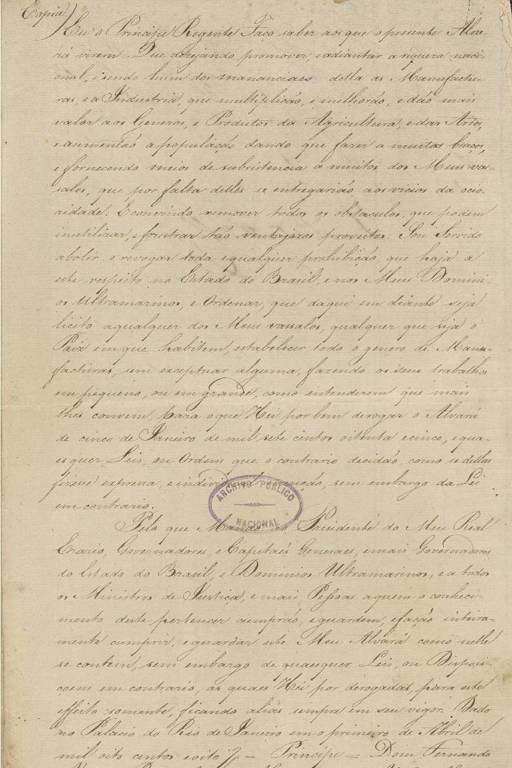 Copia)
Eu o Principe Regente Faço saber aos que o presente Alva-
rá virem: Que dezejando promover, e adiantar a riqueza naci-
onal, e sendo hum dos mananciaes della as Manufactu-
ras, e a Industria, que multiplicão, e melhorão, e dão mais
valor aos Generos, e Produtos da Agricultura, e das Artes,
e augmentão a população dando que fazer a muitos braços,
e fornecendo meios de subsistencia a muitos dos Meus vas-
salos, que por falta delles se entregarião aos vicios da ocio-
zidade: E convindo remover todos os obstaculos, que podem
inutilizar, e frustrar tão ventajozos proveitos: Sou Servido
abolir, e revogar toda e qualquer prohibição, que haja a
este respeito no Estado do Brasil, e nos Meus Domini-
os Ultramarinos, e Ordenar, que daqui em diante seja
licito a qualquer dos Meus vassalos, qualquer que seja o
Paiz em que habitem, estabelecer todo o genero de Manu-
facturas, sem exceptuar alguma, fazendo os seus trabalhos
em pequeno, ou em grande, como entenderem que mais
lhes convem, para o que Hei por bem derogar o Alvará
de cinco de Janeiro de mil sete centos oitenta e cinco, e qua-
esquer Leis, ou Ordem que o contrario decidão, como se dellas
fizesse expressa, e individual menção, sem embargo da Lei
em contrario.
ARCHIVO PUBLICO
NACIONAL
Pelo que Mando ao Presidente do Meu Real
Erario, Governadores, e Capitães Generaes, e mais Governadores
do Estado do Brasil, e Dominios Ultramarinos, e a todos
os Ministros de Justiça, e mais Pessoas a quem o conheci-
mento deste pertencer cumprão, e guardem, e fação inteira-
mente cumprir, e guardar este Meu Alvará como nelle
se contem, sem embargo de quaesquer Leis, ou Dispozi-
çoens em contrario, as quaes Hei por derogadas, para este
effeito somente, ficando alias sempre em seu vigor. Dado
no Palacio do Rio de Janeiro em o primeiro de Abril de
mil oito centos e oito = Principe = Dom Fernando